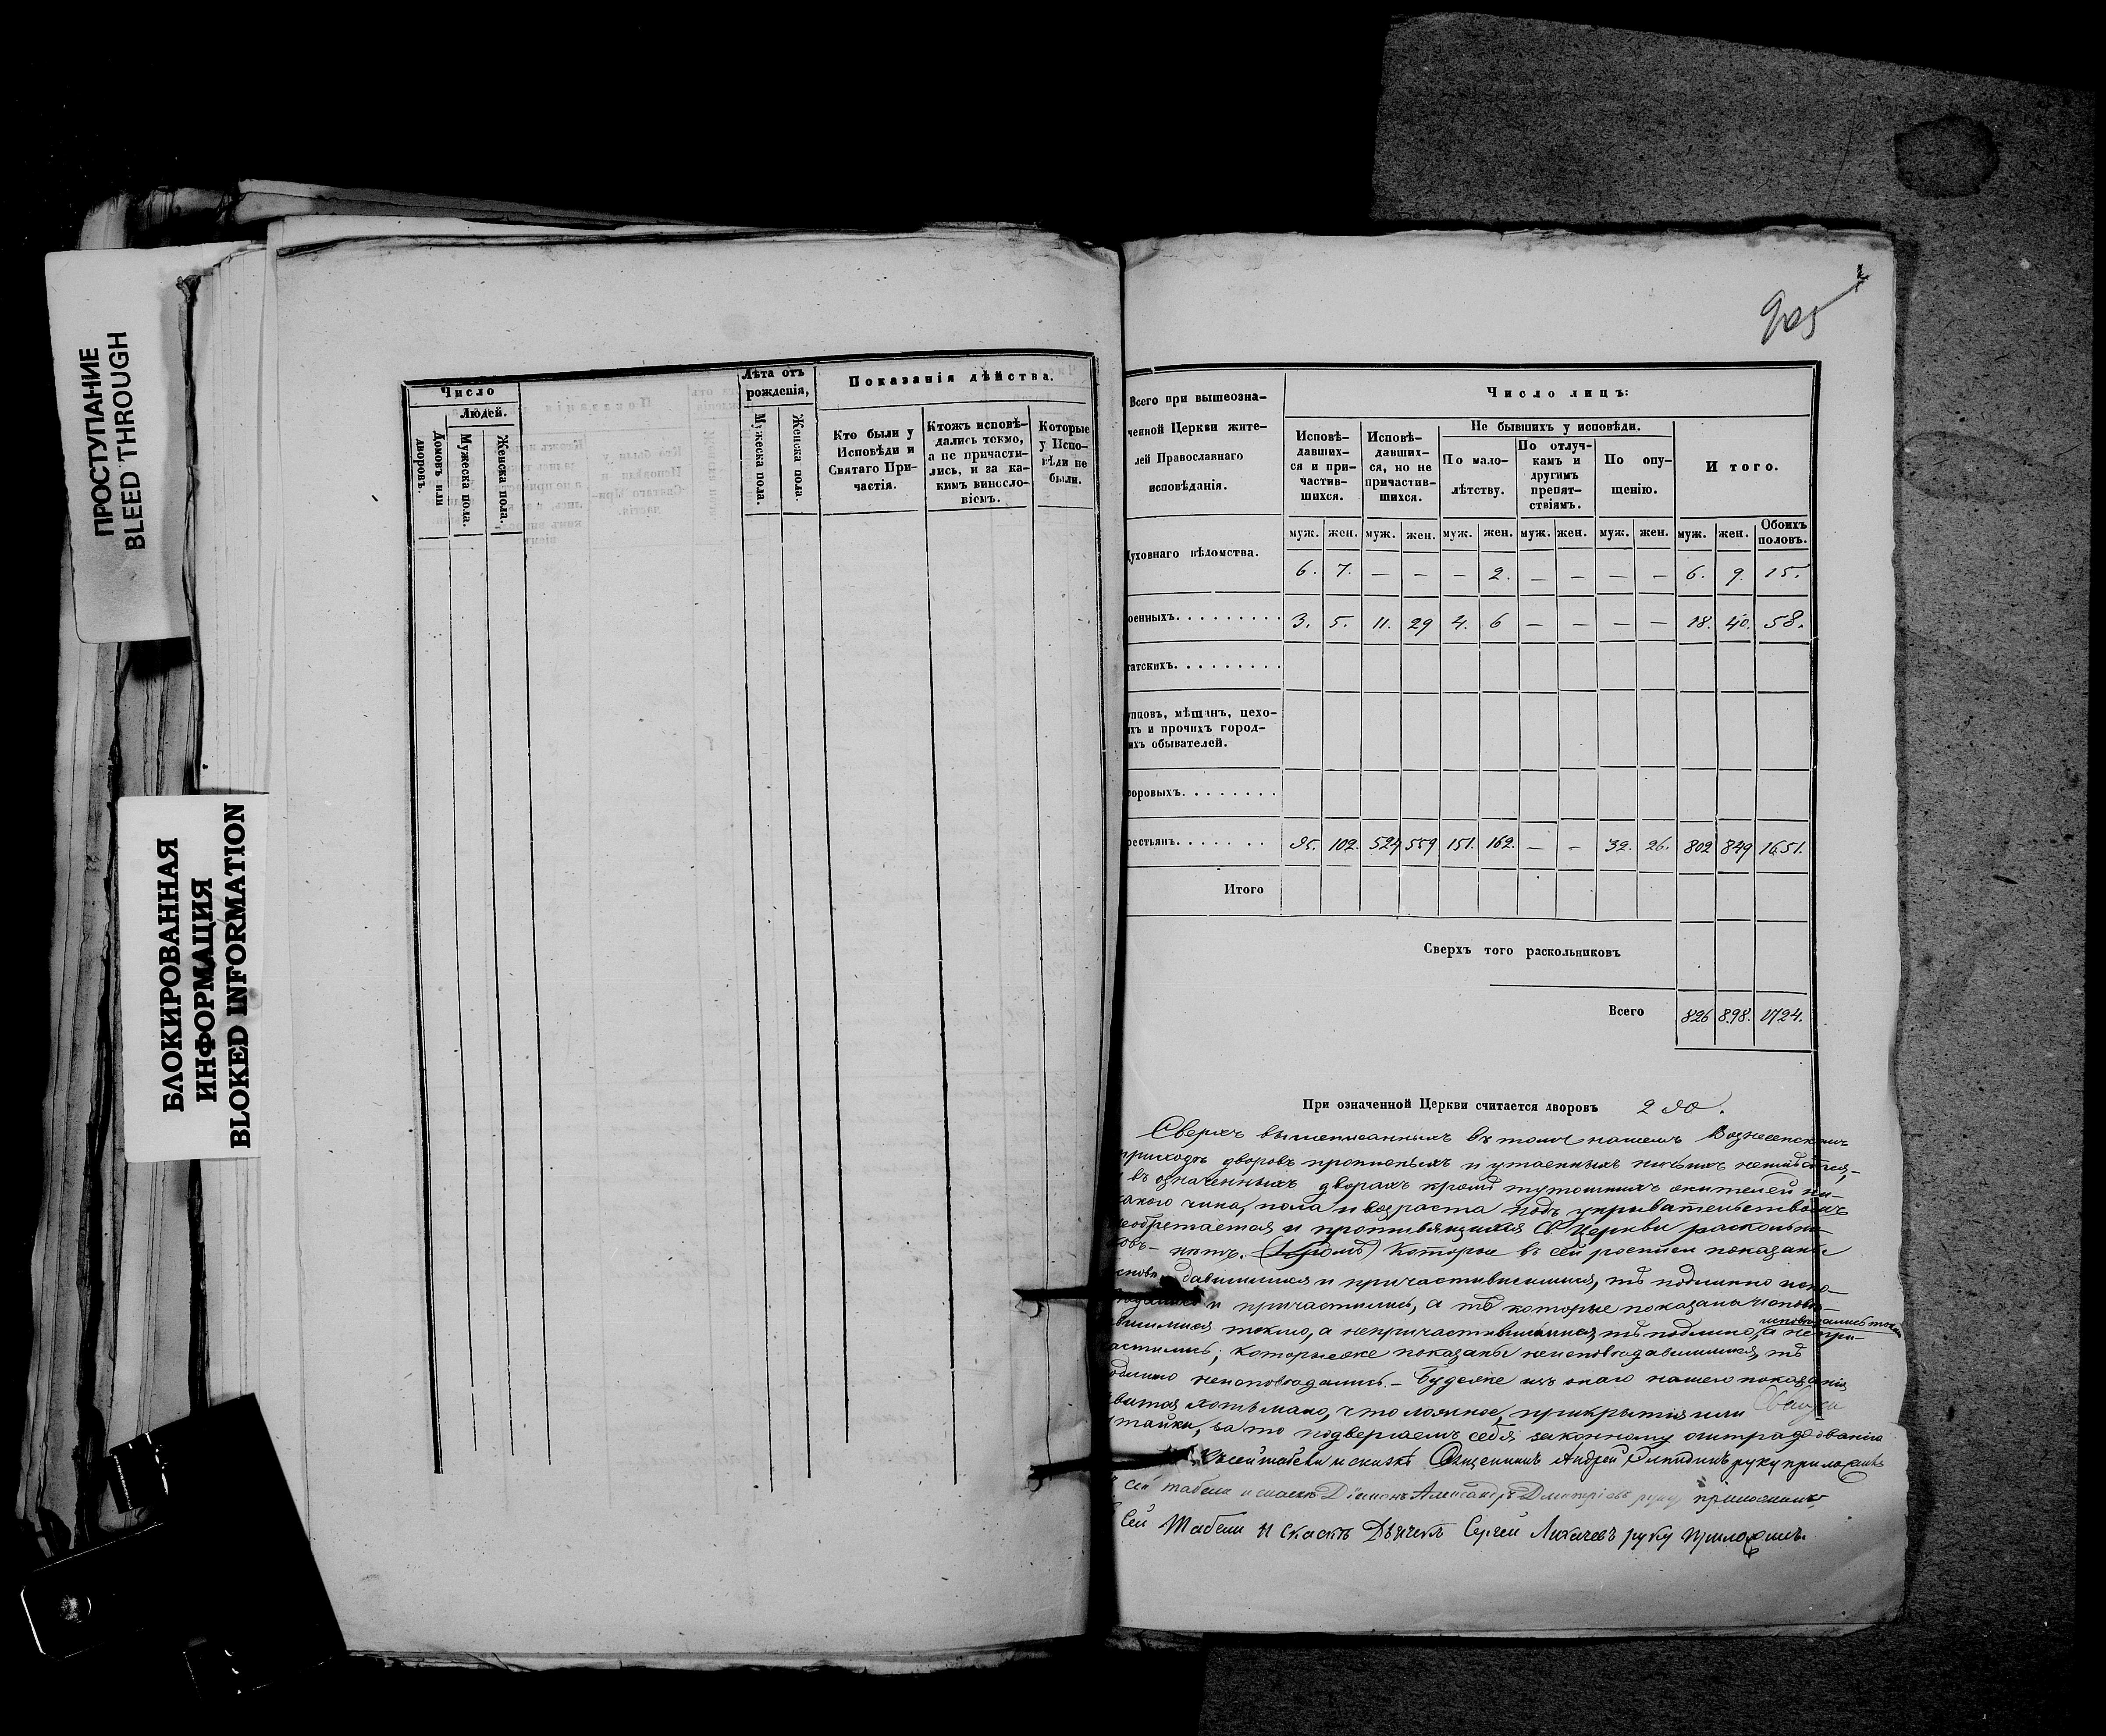 ПРОСТУПАНИЕ
BLEED THROUGH
БЛОКИРОВАННАЯ
ИНФОРМАЦИЯ
BLOKED INFORMATION
Число
Людей.
Домовъ или дворовъ.
Мужеска пола.
Женска пола.
Лѣта отъ рожденія,
Мужеска пола.
Женска пола.
Показанія дѣйства.
Кто были у Исповѣди и Святаго Причастія.
Ктожъ исповѣдались токмо, а не причастились, и за какимъ винословіемъ.
Которые у Исповѣди не были.
905
Всего при вышеозна-
ченной Церкви жите-
лей Православнаго
исповѣданія.
Число лицъ:
Исповѣ-
давших-
ся и при-
частив-
шихся.
Исповѣ-
давших-
ся, но не
причастив-
шихся.
Не бывшихъ у исповѣди.
По мало-
лѣтству.
По отлуч-
камъ и
другимъ
препят-
ствіямъ.
По опу-
щенію.
Итого.
муж. жен. муж. жен. муж. жен. муж. жен. муж. жен. муж. жен. Обоихъ половъ.
уховнаго вѣдомства. 6. 7. — — — 2. — — — — 6. 9. 15.
оенныхъ. 3. 5. 11. 29 4. 6 — — — — 18. 40. 58.
татскихъ.
упцовъ, мѣщанъ, цехо-
ихъ и прочихъ город-
ихъ обывателей.
воровыхъ.
рестьянъ. 95. 102. 524 559 151. 162. — — 32. 26. 802 849 1651.
Итого
Сверхъ того раскольниковъ
Всего 826 898. 1724.
При означенной Церкви считается дворовъ 290.
Сверхъ вышеписанныхъ въ томъ нашемъ Вознесенскомъ
приходѣ дворовъ прописныхъ и утаенныхъ
въ означенныхъ дворахъ кромѣ тутошнихъ жителей ни-
какого чина, пола и возраста подъ укрывательствомъ
необретается и противящихся Св. Церкви раскольни-
ковъ — нѣтъ. (Кромѣ) Которые въ сей росписи показаны
исповѣдавшимися и причастившимися, тѣ подлинно испо-
и причастились, а тѣ которые показаны исповѣ-
исповѣдались токмо
вшимися токмо, а непричастившимися, тѣ подлинно, а непри-
частились; которыеже показаны неисповѣдавшимися, тѣ
подлинно неисповѣдались. — Будеже изъ онаго нашего показанія
явится хотя мало, что ложное, прикрытія или
утайки, за то подвергаемъ себя законному оштрафованію
Къ сей табели и сказкѣ Священникъ Андрей руку приложилъ
сей табели и сказкѣ Діаконъ Александръ Дмитріевъ руку приложилъ
Сей Табели и Сказкѣ Дьячекъ Сергей Лихачевъ руку приложилъ.